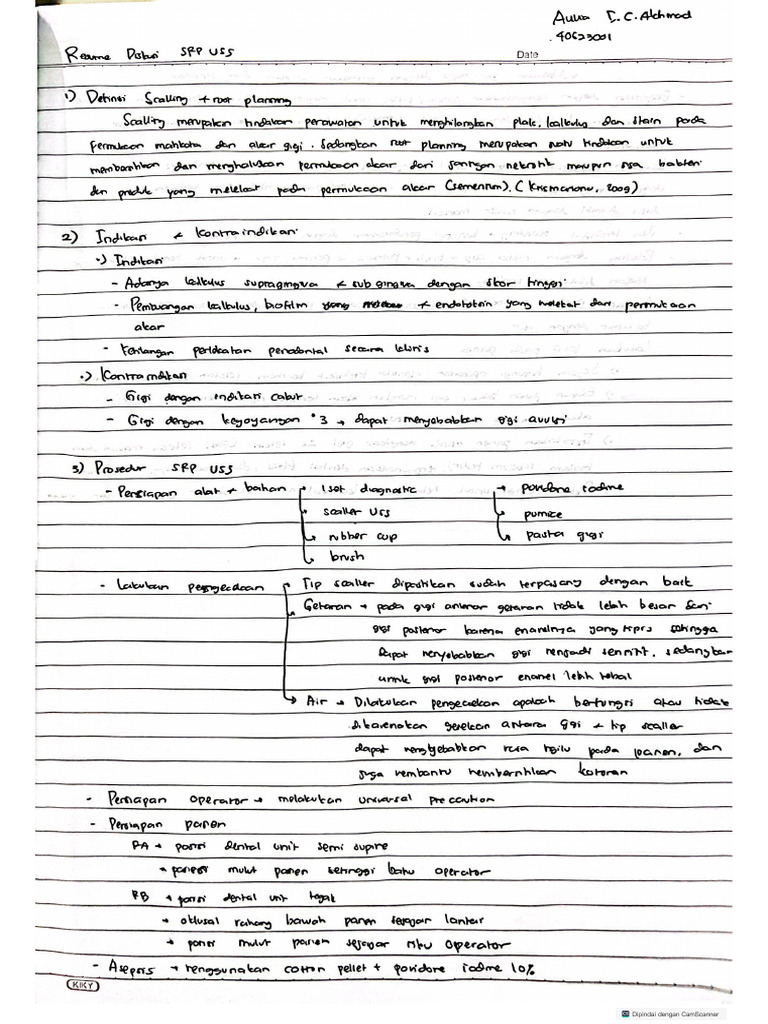 Aulia I. C. Akhmad
40623001
Resume Diskusi SRP USS
Date
1) Definisi Scalling + root planning
Scalling merupakan tindakan perawatan untuk menghilangkan plak, kalkulus dan stain pada
permukaan mahkota dan akar gigi. Sedangkan root planning merupakan suatu tindakan untuk
membersihkan dan menghaluskan permukaan akar dari jaringan nekrotik maupun sisa bakteri
dan produk yang melekat pada permukaan akar (sementum). (Krismariono, 2009)
2) Indikasi & Kontraindikasi
•) Indikasi
- Adanya kalkulus supragingiva & subgingiva dengan skor tinggi
- Pembuangan kalkulus, biofilm + endotoksin yang melekat dari permukaan
akar
- Kehilangan perlekatan periodontal secara klinis
•) Kontraindikasi
- Gigi dengan indikasi cabut
- Gigi dengan kegoyangan °3 → dapat menyebabkan gigi avulsi
3) Prosedur SRP USS
- Persiapan alat + bahan → 1 set diagnostic → povidone iodine
→ scaller USS → pumice
→ rubber cup → pasta gigi
→ brush
- Lakukan pengecekan → Tip scaller dipastikan sudah terpasang dengan baik
→ Getaran → pada gigi anterior getaran tidak lebih besar dari
gigi posterior karena enamelnya yang tipis sehingga
dapat menyebabkan gigi menjadi sensitif, sedangkan
untuk gigi posterior enamel lebih tebal
→ Air → Dilakukan pengecekan apakah berfungsi atau tidak
dikarenakan gesekan antara gigi & tip scaller
dapat menyebabkan rasa ngilu pada pasien, dan
juga membantu membersihkan kotoran
- Persiapan operator → melakukan universal precaution
- Persiapan pasien
RA → posisi dental unit semi supine
→ posisi mulut pasien setinggi bahu operator
RB → posisi dental unit tegak
→ oklusal rahang bawah pasien sejajar lantai
→ posisi mulut pasien sejajar siku operator
- Asepsis → menggunakan cotton pellet + povidone iodine 10%
KIKY
Dipindai dengan CamScanner